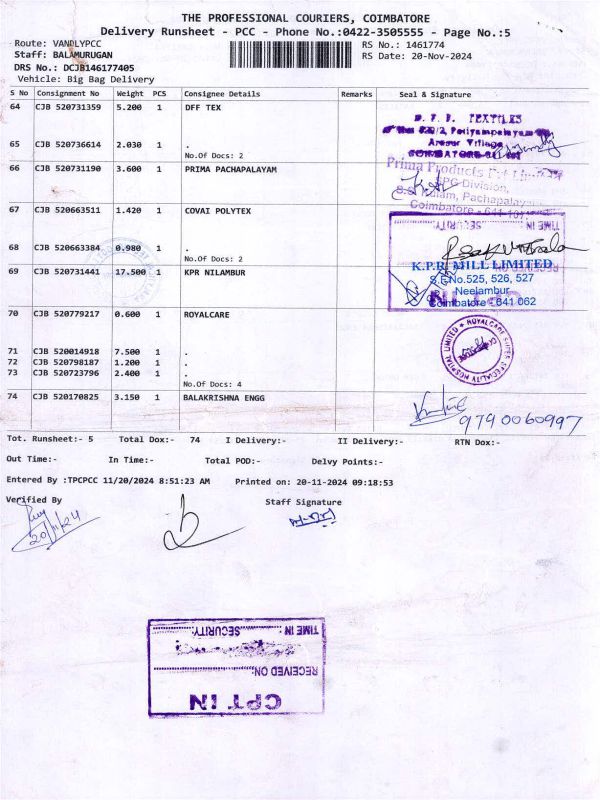 THE PROFESSIONAL COURIERS, COIMBATORE
Delivery Runsheet - PCC - Phone No.:0422-3505555 - Page No.:5
Route: VANDLYPCC
RS No.: 1461774
Staff: BALAMURUGAN
RS Date: 20-Nov-2024
DRS No.: DCJB146177405
Vehicle: Big Bag Delivery
S No Consignment No Weight PCS Consignee Details Remarks Seal & Signature
64 CJB 520731359 5.200 1 DFF TEX
65 CJB 520736614 2.030 1 .
No.Of Docs: 2
66 CJB 520731190 3.600 1 PRIMA PACHAPALAYAM
67 CJB 520663511 1.420 1 COVAI POLYTEX
68 CJB 520663384 0.980 1 .
No.Of Docs: 2
69 CJB 520731441 17.500 1 KPR NILAMBUR
70 CJB 520779217 0.600 1 ROYALCARE
71 CJB 520014918 7.500 1 .
72 CJB 520798187 1.200 1 .
73 CJB 520723796 2.400 1 .
No.Of Docs: 4
74 CJB 520170825 3.150 1 BALAKRISHNA ENGG
TEXTILES
Arasur Village
Prima Products Pvt Limited
Division,
Pachapalay
Coimbatore - 641 107
TIME IN SECURITY
K.P.R. MILL LIMITED
S.F.No.525, 526, 527
Neelambur
Coimbatore - 641 062
ROYALCARE SUPER SPECIALITY HOSPITAL LIMITED
9790060997
Tot. Runsheet:- 5 Total Dox:- 74 I Delivery:- II Delivery:- RTN Dox:-
Out Time:- In Time:- Total POD:- Delvy Points:-
Entered By :TPCPCC 11/20/2024 8:51:23 AM Printed on: 20-11-2024 09:18:53
Verified By Staff Signature
20/11/24
CPT IN
RECEIVED ON:
TIME IN SECURITY: